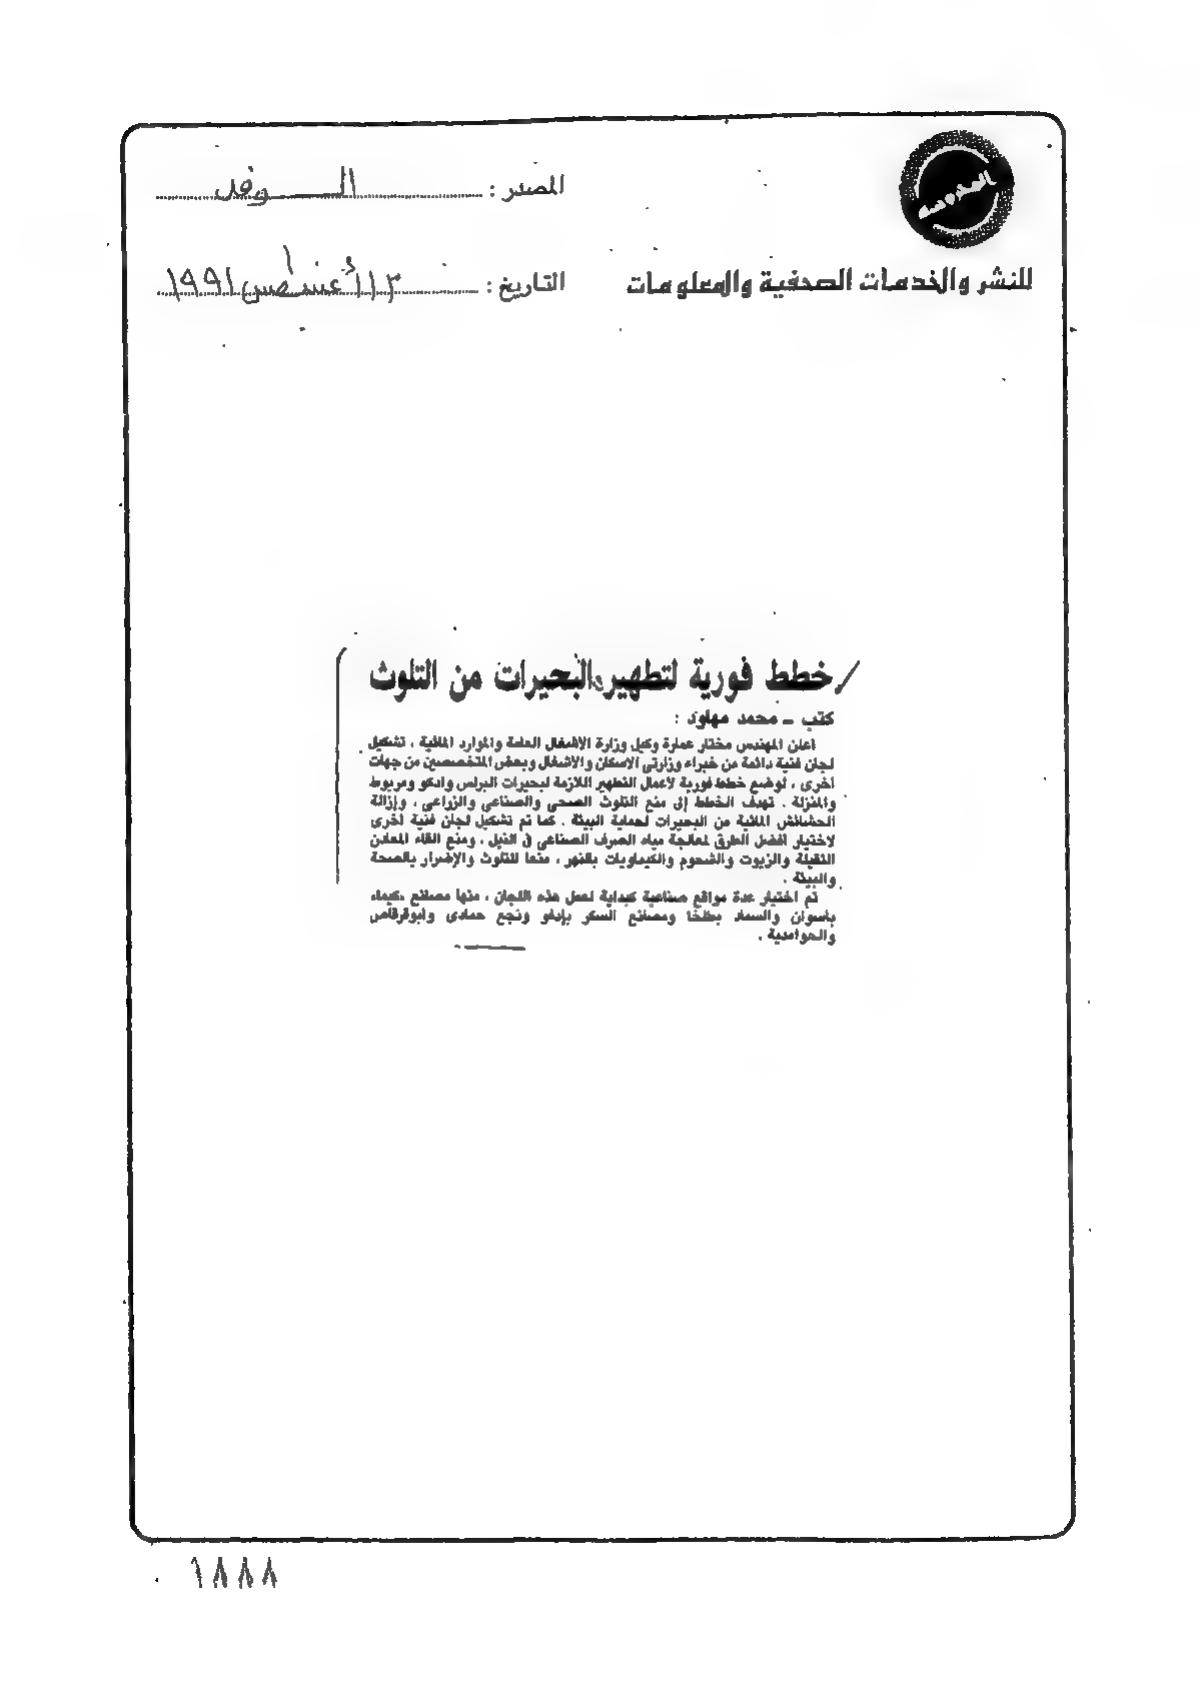 المحروسة
المصدر : الوفد
للنشر والخدمات الصحفية والمعلومات
التاريخ : ١٣ أغسطس ١٩٩١
خطط فورية لتطهير البحيرات من التلوث
كتب ــ محمد مهاود :
اعلن المهندس مختار عمارة وكيل وزارة الاشغال العامة والموارد المائية ، تشكيل
لجان فنية دائمة من خبراء وزارتى الاسكان والاشغال وبعض المتخصصين من جهات
اخرى ، لوضع خطط فورية لاعمال التطهير اللازمة لبحيرات البرلس وادكو ومريوط
والمنزلة . تهدف الخطط إلى منع التلوث الصحى والصناعى والزراعى ، وإزالة
الحشائش المائية من البحيرات لحماية البيئة . كما تم تشكيل لجان فنية اخرى
لاختيار افضل الطرق لمعالجة مياه الصرف الصناعى فى النيل ، ومنع القاء المعادن
الثقيلة والزيوت والشحوم والكيماويات بالنهر ، منعا للتلوث والإضرار بالصحة
والبيئة .
تم اختيار عدة مواقع صناعية كبداية لعمل هذه اللجان ، منها مصانع كيماء
باسوان والسماد بطلخا ومصانع السكر بإدفو ونجع حمادى وابوقرقاص
والحوامدية .
١٨٨٨